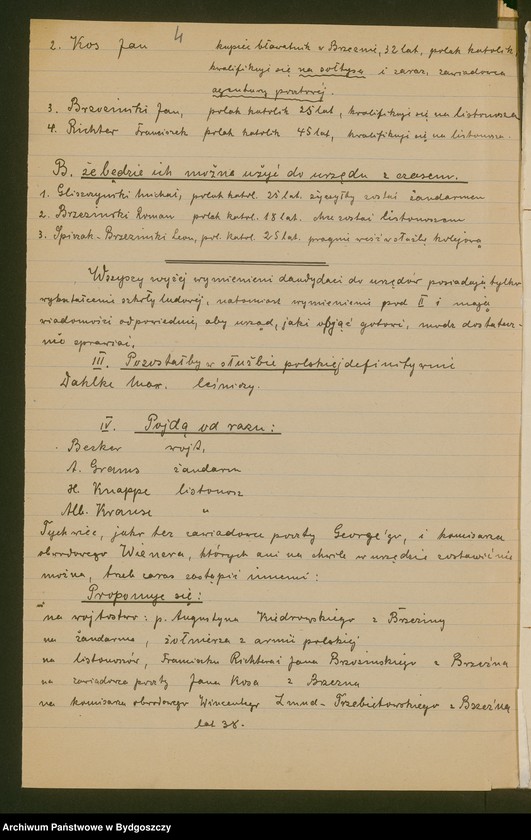 4
2. Kos Jan kupiec bławatnik w Brzeźnie, 32 lat, polak katolik
kwalifikuje się na sołtysa i zaraz, zawiadowca
agentury pocztowej.
3. Brzeziński Jan, polak katolik 25 lat, kwalifikuje się na listonosza
4. Richter Franciszek polak katolik 45 lat, kwalifikuje się na listonosza.
B. że będzie ich można użyć do urzędu z czasem.
1. Gliszczyński Michał, polak katol. 25 lat życzyłby zostać żandarmem
2. Brzeziński Roman polak katol. 18 lat. chce zostać listonoszem
3. Spiczak-Brzeziński Leon, pol. katol. 25 lat. pragnie wejść w służbę kolejową
Wszyscy wyżej wymienieni kandydaci do urzędów posiadają tylko
wykształcenie szkoły ludowej, natomiast wymienieni pod II i mają
wiadomości odpowiednie, aby urząd, jaki objąć gotowi, módz dostatecz-
nie sprawiać.
III. Pozostałby w służbie polskiej definitywnie
Dahlke Max. leśniczy.
IV. Pójdą od razu:
Becker wójt,
A. Grams żandarm
H. Knappe listonosz
Alb. Krause "
Tych więc, jako też zawiadowcę poczty George'go, i komisarza
obwodowego Wienera, których ani na chwilę w urzędzie zostawić nie
można, trzeb zaraz zastąpić innemi:
Proponuje się:
na wójtostwo: p. Augustyna Kiedrowskiego z Brzeźny
na żandarma, żołnierza z armii polskiej
na listonoszów, Franciszka Richtera i Jana Brzezińskiego z Brzeźna
na zawiadowcę poczty Jana Kosa z Brzeźna
na komisarza obwodowego Wincentego Zmuda-Trzebiatowskiego z Brzeźna
lat 38.
Archiwum Państwowe w Bydgoszczy